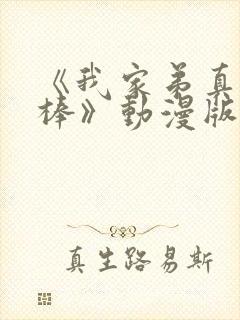 《我家弟真
棒》動漫版
真生路易斯